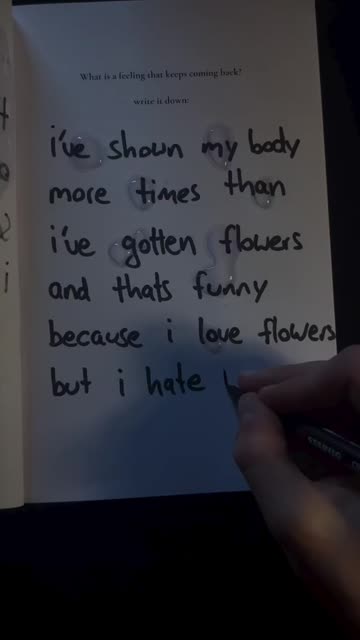 What is a feeling that keeps coming back?
write it down:
i've shown my body
more times than
i've gotten flowers
and thats funny
because i love flowers
but i hate